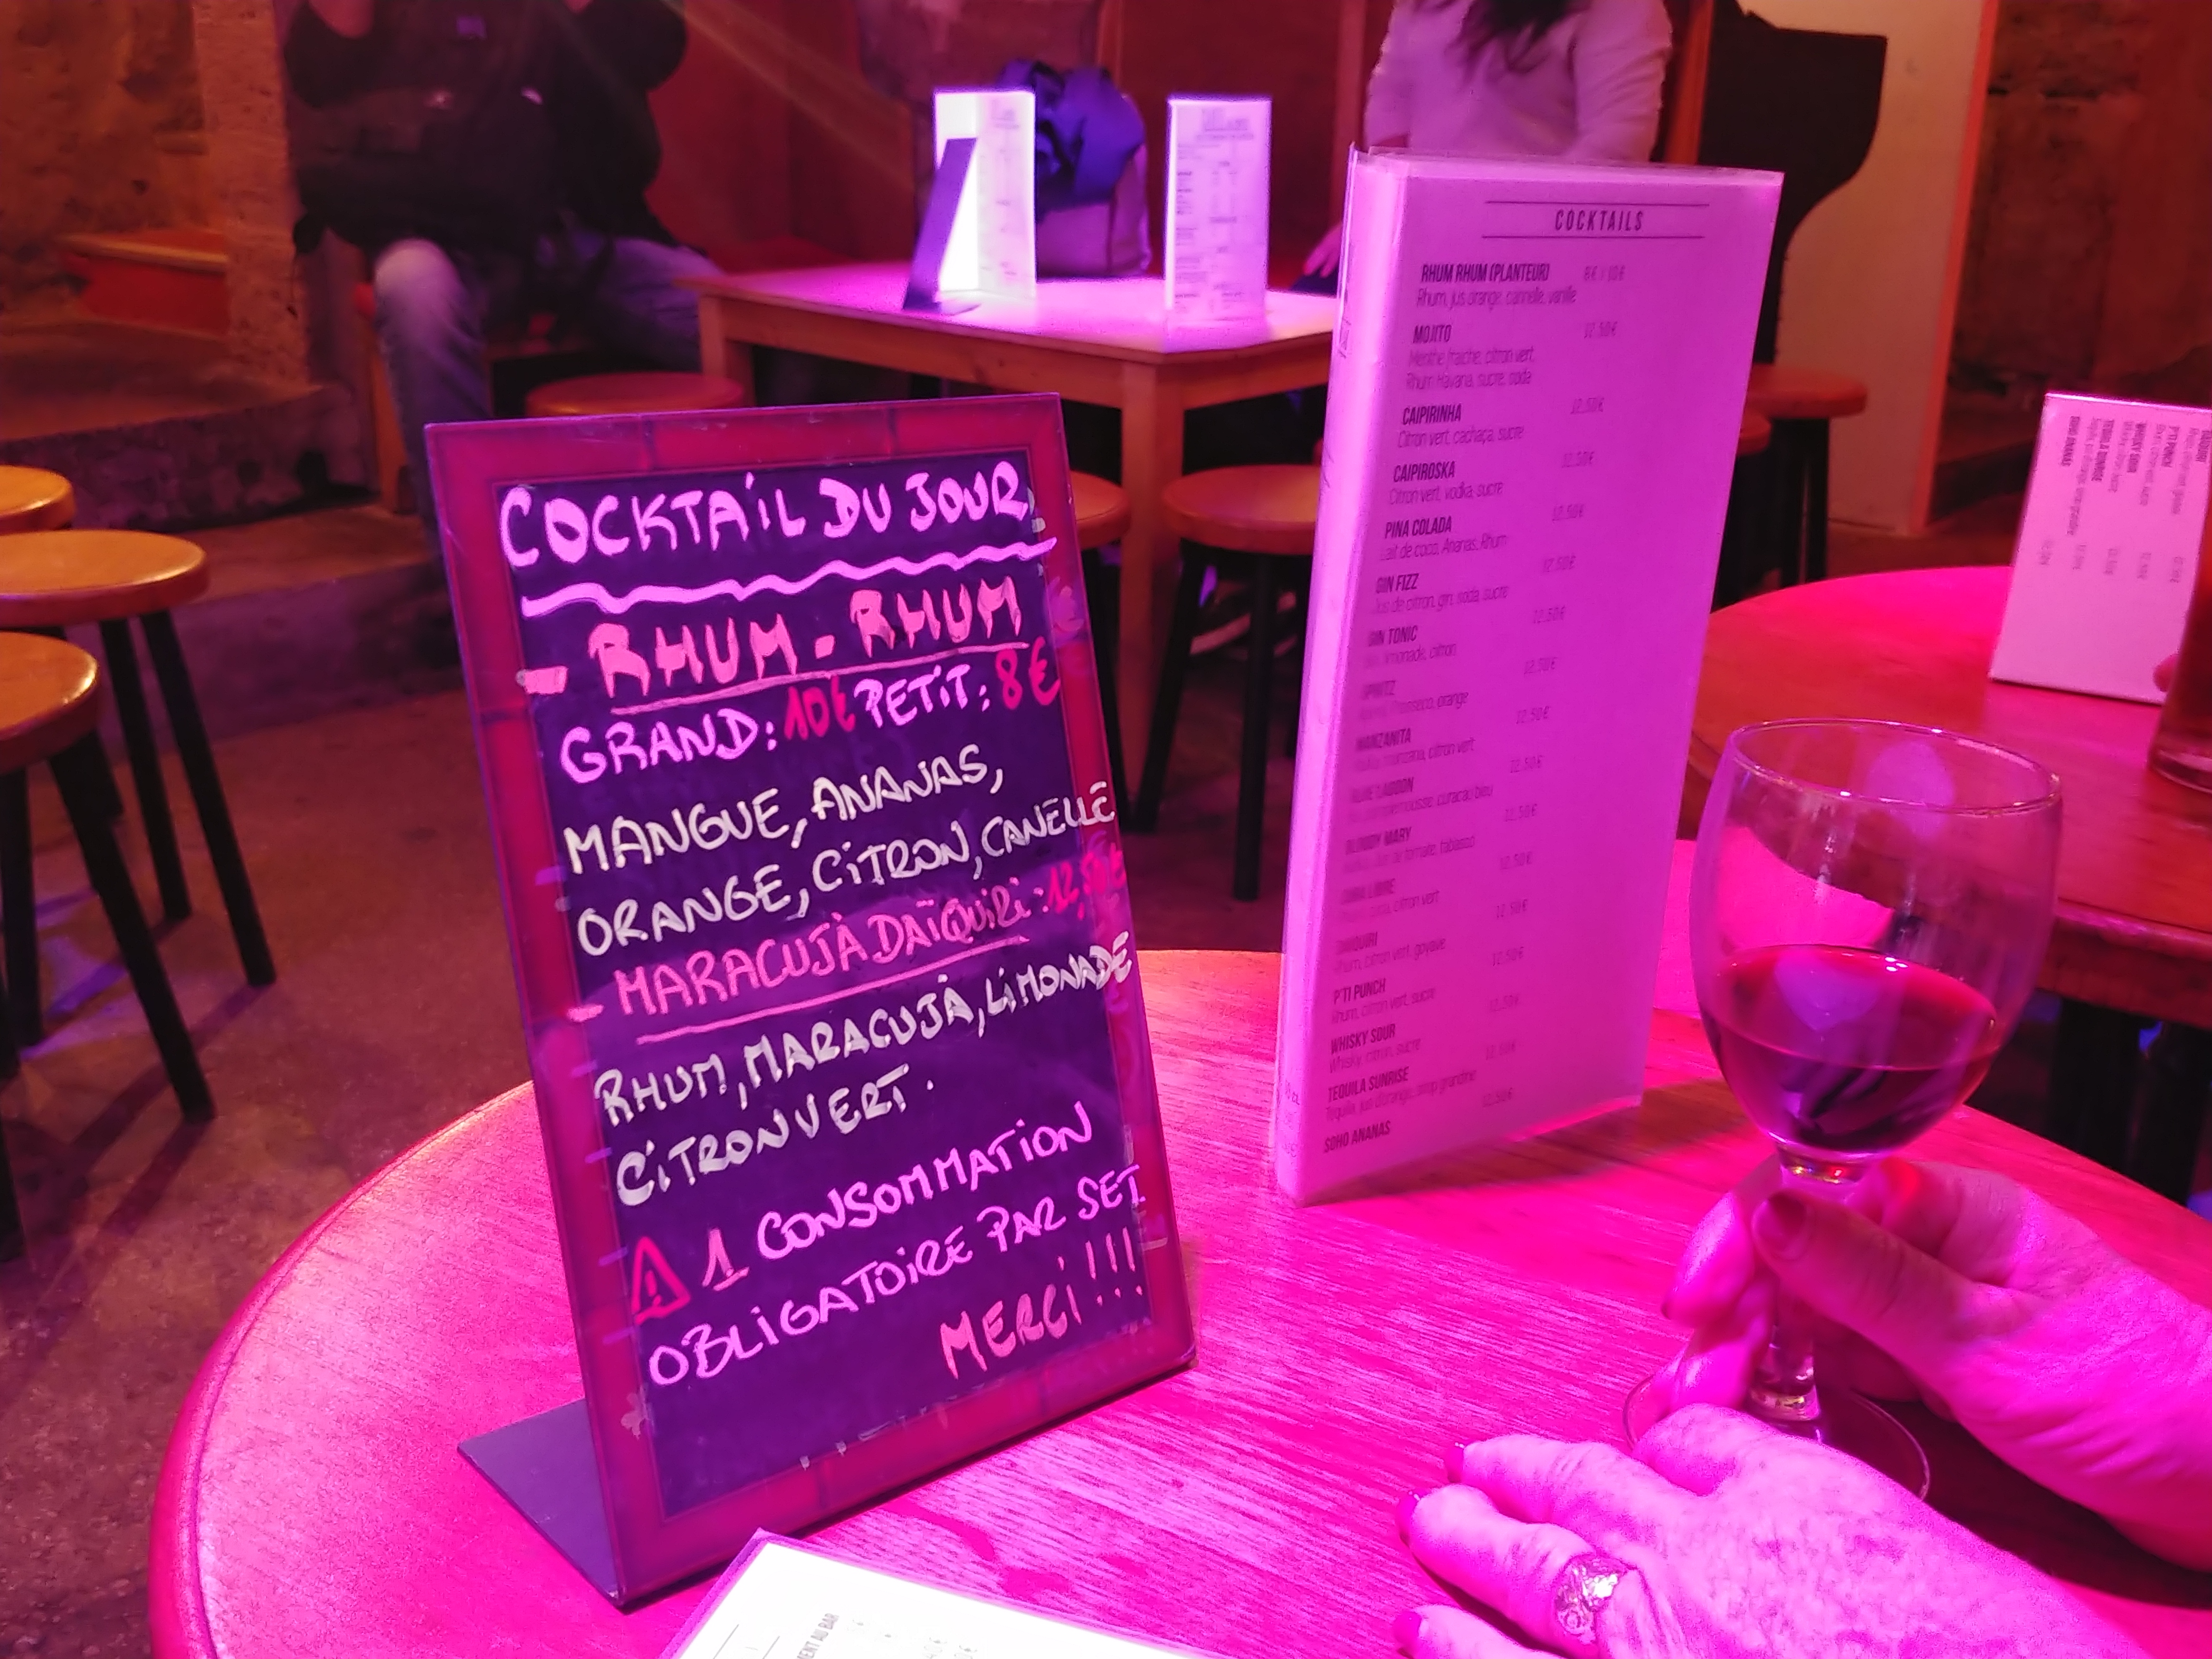 COCKTAIL DU JOUR
- RHUM - RHUM
GRAND: 10€ PETIT: 8€
MANGUE, ANANAS,
ORANGE, CITRON, CANELLE
- MARACUJÀ DAÏQUIRI: 12,50€
RHUM, MARACUJÀ, LIMONADE
CITRON VERT.
⚠ 1 CONSOMMATION
OBLIGATOIRE PAR SET
MERCI!!!
COCKTAILS
RHUM RHUM (PLANTEUR) 8€ / 10€
Rhum, jus orange, cannelle, vanille
MOJITO 12.50€
Menthe fraiche, citron vert,
Rhum Havana, sucre, soda
CAIPIRINHA 12.50€
Citron vert, cachaça, sucre
CAIPIROSKA 12.50€
Citron vert, vodka, sucre
PINA COLADA 12.50€
Lait de coco, Ananas, Rhum
GIN FIZZ 12.50€
Jus de citron, gin, soda, sucre
GIN TONIC 12.50€
limonade, citron
SPRITZ 12.50€
Prosecco, orange
MANZANITA 12.50€
manzana, citron vert
BLUE LAGOON 12.50€
curacao bleu
BLOODY MARY 12.50€
jus de tomate, tabasco
CUBA LIBRE 12.50€
citron vert
DAIQUIRI 12.50€
Rhum, citron vert, goyave
P'TI PUNCH 12.50€
Rhum, citron vert, sucre
WHISKY SOUR 12.50€
Whisky, citron, sucre
TEQUILA SUNRISE 12.50€
Tequila, jus d'orange, sirop grenadine
SOHO ANANAS 12.50€
P'TI PUNCH
WHISKY SOUR
TEQUILA SUNRISE
SOHO ANANAS
AU BAR